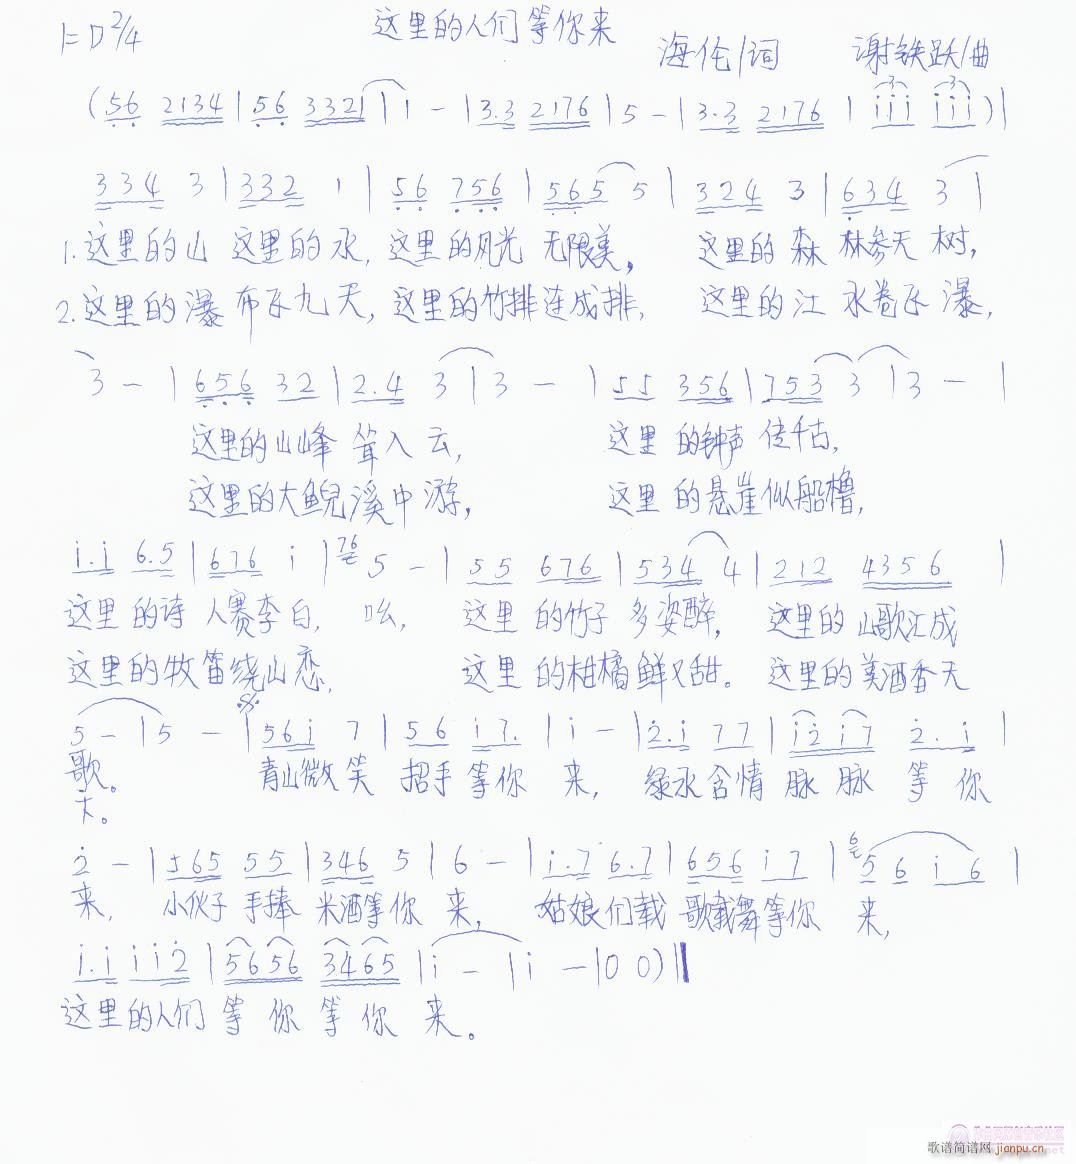 这里的人们等你来
1=D 2/4
海伦/词 谢铁跃/曲
(56 2134 | 56 3321 | 1 - | 3.3 2176 | 5 - | 3.3 2176 | iii iii) |
334 3 | 332 1 | 56 756 | 565 5 | 324 3 | 634 3 |
1.这里的山 这里的水, 这里的风光 无限美, 这里的 森 林参天 树,
2.这里的瀑 布飞九 天, 这里的竹排连成排, 这里的江 水卷飞 瀑,
3 - | 656 32 | 2.4 3 | 3 - | 55 356 | 753 3 | 3 - |
这里的山峰 耸入 云, 这里 的钟声 传千古,
这里的大鲵溪中 游, 这里 的悬崖似船橹,
i.i 6.5 | 676 i | 76 5 - | 55 676 | 534 4 | 212 4356 |
这里 的诗 人赛李白, 吆, 这里 的竹子 多姿醉, 这里的 山歌汇成
这里的牧 笛绕山恋, 这里 的柑橘鲜又甜。 这里的 美酒香天
5 - | 5 - | 56i 7 | 56 i7. | i - | 2.i 77 | i2i7 2.i |
歌。 青山微 笑 招手 等你 来, 绿水含情 脉 脉 等 你
下。
2 - | 565 55 | 346 5 | 6 - | i.7 6.7 | 656 i7 | 6 5 6 i 6 |
来, 小伙子 手捧 米酒等你 来, 姑娘们载 歌载舞等你 来,
i.i ii2 | 5656 3465 | i - | i - | 0 0) ‖
这里的人们 等 你 等 你 来。
歌谱简谱网 jianpu.cn